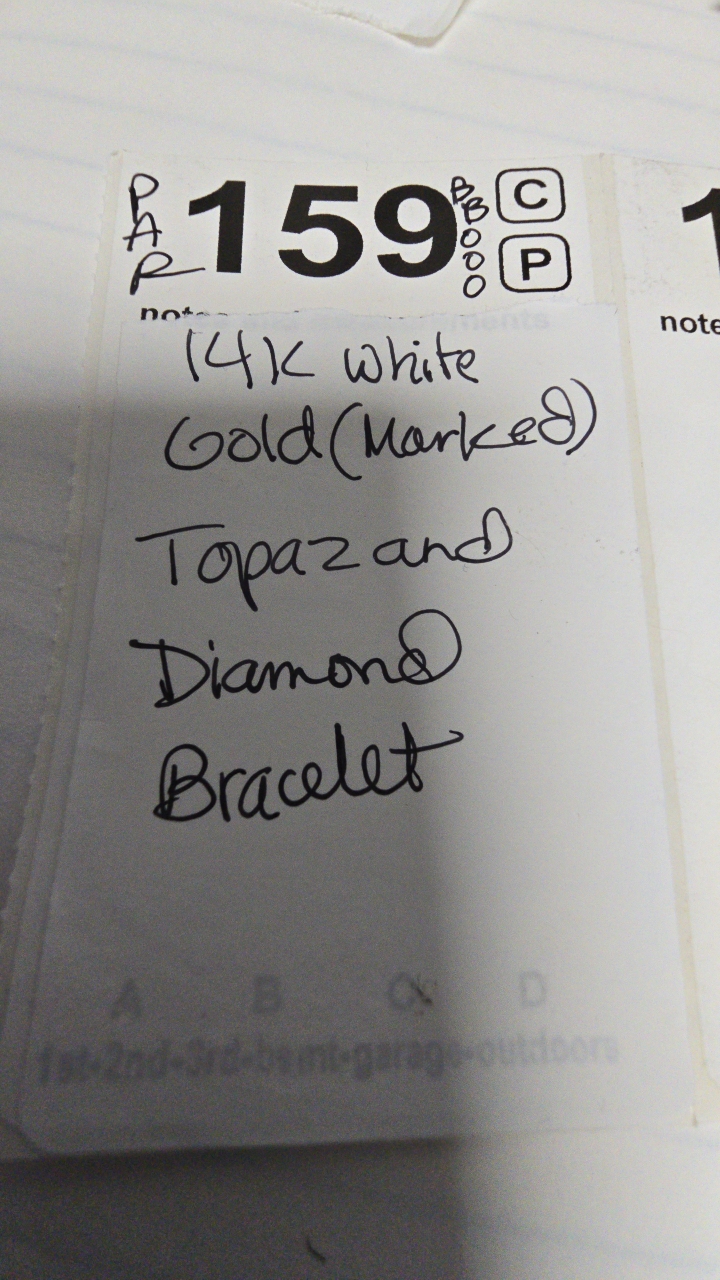 PAR 159 BBOOO C
P
notes and measurements
14K White
Gold (Marked)
Topaz and
Diamond
Bracelet
A B C D
1st-2nd-3rd-bsmt-garage-outdoors
1
note